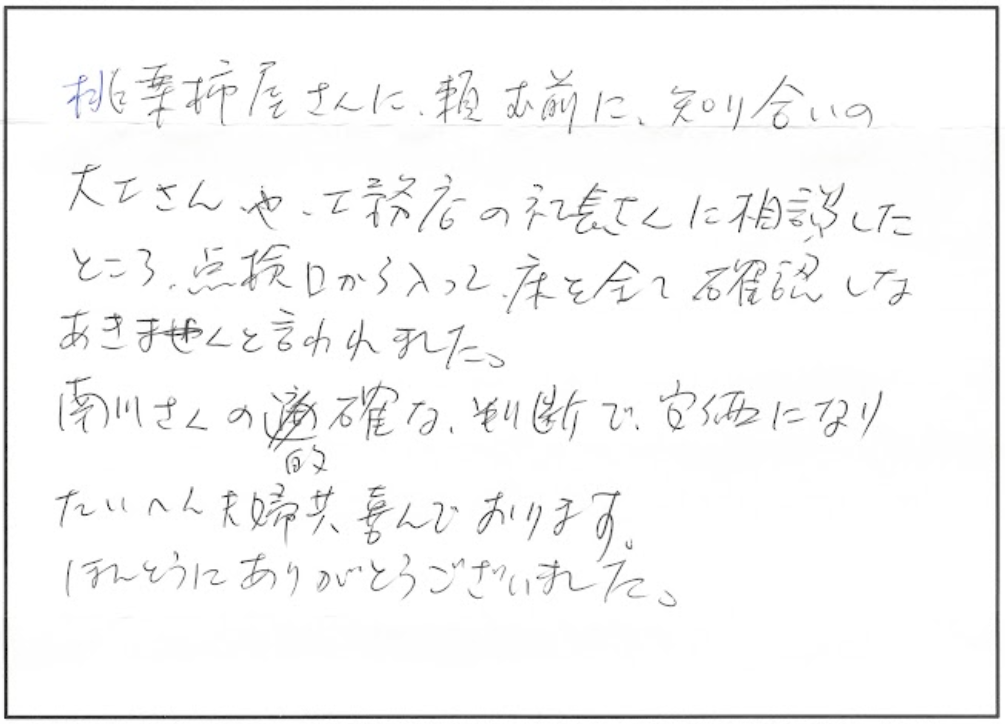 桃栗柿屋さんに、頼む前に、知り合いの
大工さんや、工務店の社長さんに相談した
ところ、点検口から入って、床を全て確認しな
あきませんと言われました。
南川さんの的確な、判断で、安価になり
たいへん夫婦共、喜んでおります。
ほんとうにありがとうございました。